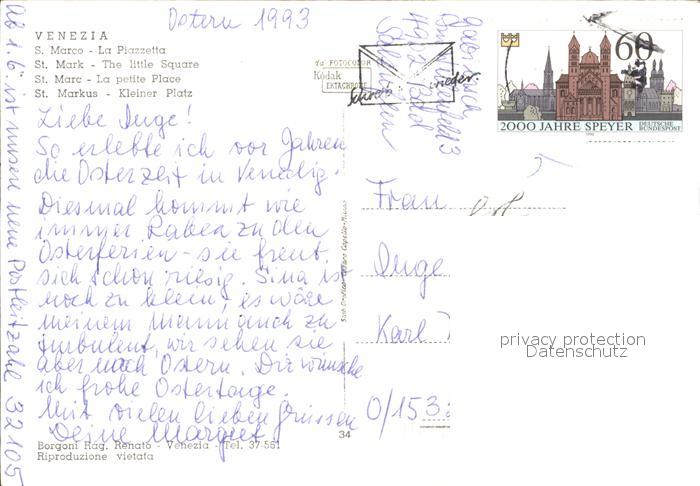 Ostern 1993
VENEZIA
S. Marco - La Piazzetta
St. Mark - The little Square
St. Marc - La petite Place
St. Markus - Kleiner Platz
da FOTOCOLOR
Kodak
EKTACHROME
Schreib wieder.
60
2000 JAHRE SPEYER
DEUTSCHE
BUNDESPOST
Liebe Inge!
So erlebte ich vor Jahren
die Osterzeit in Venedig.
Diesmal kommt wie
immer Rabea zu den
Osterferien - sie freut
sich schon riesig. Sina ist
noch zu klein, es wäre
meinem Mann auch zu
turbulent, wir sehen sie
aber nach Ostern. Dir wünsche
ich frohe Ostertage.
Mit vielen lieben Grüssen
Deine Margret
Ab 1.6. ist unsere neue Postleitzahl 32105
Frau
Inge
Karl
O/153
privacy protection
Datenschutz
34
Borgoni Rag. Renato - Venezia - Tel. 37-561
Riproduzione vietata